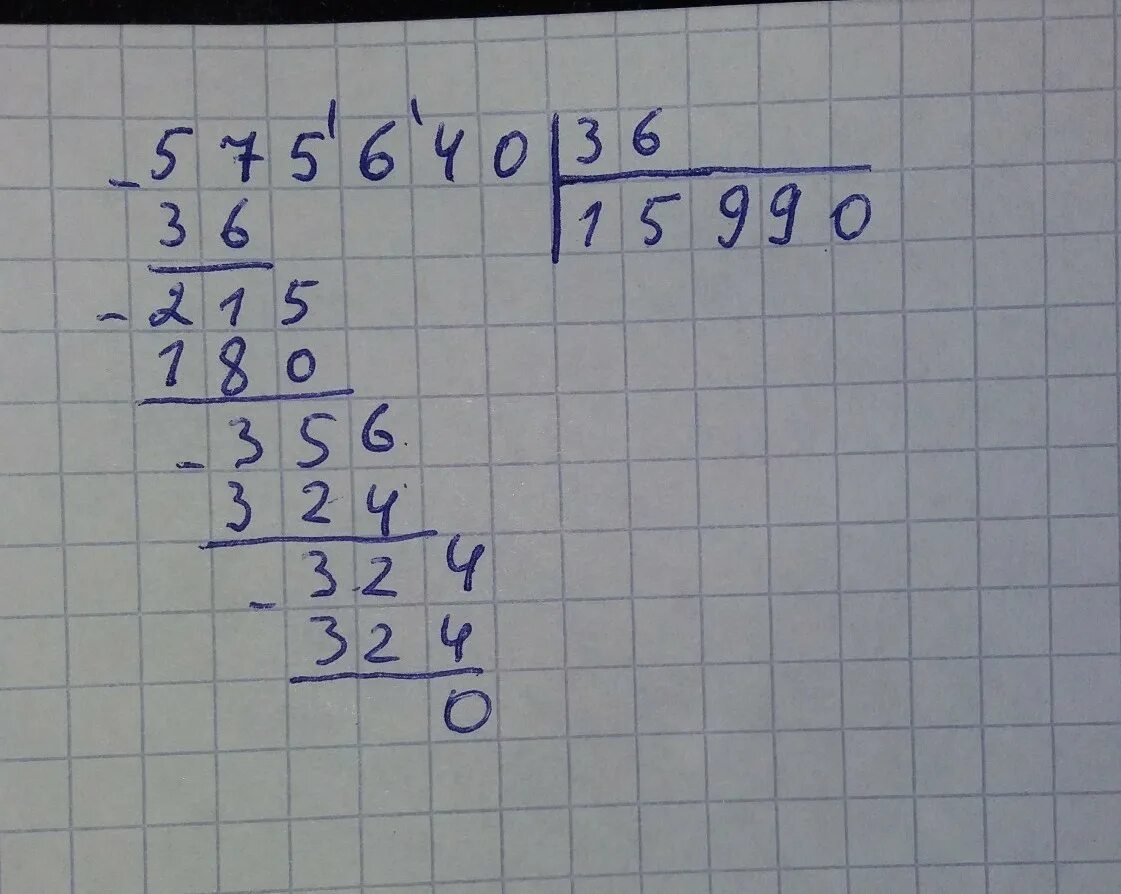 - 575640 | 36
36 | 15990
- 215
180
- 356
324
- 324
324
0